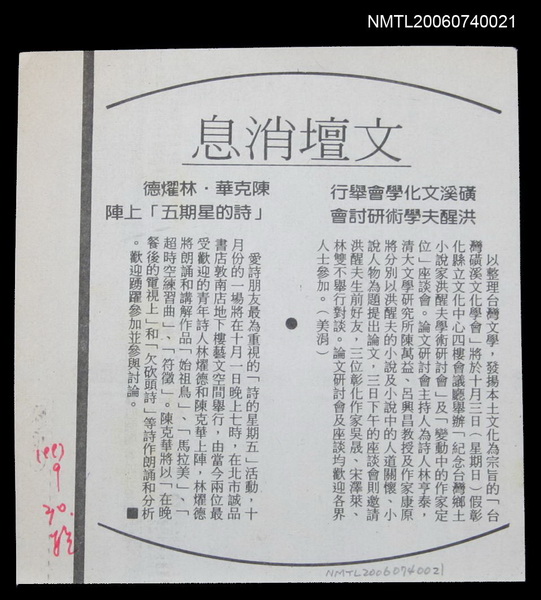 NMTL20060740021
文壇消息
磺溪文化學會舉行
洪醒夫學術研討會
以整理台灣文學，發揚本土文化為宗旨的「台
灣磺溪文化學會」將於十月三日（星期日）假彰
化縣立文化中心四樓會議廳舉辦「紀念台灣鄉土
小說家洪醒夫學術研討會」及「變動中的作家定
位」座談會。論文研討會主持人為詩人林亨泰，
清大文學研究所陳萬益、呂興昌教授及作家康原
將分別以洪醒夫的小說及小說中的人道關懷、小
說人物為題提出論文，三日下午的座談會則邀請
洪醒夫生前好友，三位彰化作家吳晟、宋澤萊、
林雙不舉行對談。論文研討會及座談均歡迎各界
人士參加。（美涓）
●
陳克華．林燿德
「詩的星期五」上陣
愛詩朋友最為重視的「詩的星期五」活動，十
月份的一場將在十月一日晚上七時，在北市誠品
書店敦南店地下樓藝文空間舉行，由當今兩位最
受歡迎的青年詩人林燿德和陳克華上陣，林燿德
將朗誦和講解作品「始祖鳥」、「馬拉美」、「
超時空練習曲」、「符徵」。陳克華將以「在晚
餐後的電視上」和「欠砍頭詩」等詩作朗誦和分析
。歡迎踴躍參加並參與討論。■
1993
9
30.
NMTL20060740021